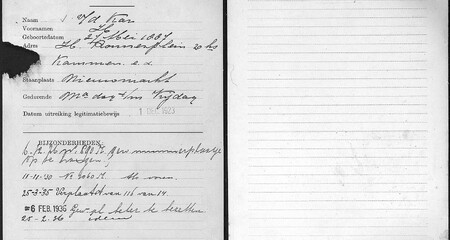 Naam v/d Kar
Voornamen
Geboortedatum 27 Mei 1887
Adres H. Ronnerplein 20 hs
Kammen e.d.
Staanplaats Nieuwmarkt
Gedeelte Ma dag t/m Vrijdag
Datum uitreiking legitimatiebewijs 1 DEC 1923
BIJZONDERHEDEN:
nummerplaatje
op te hangen
11-11-30 No
25-3-35 Verplaatst van 116 van 14.
6 FEB. 1936 Gew. pl. beter te bezetten
25-2-36 idem